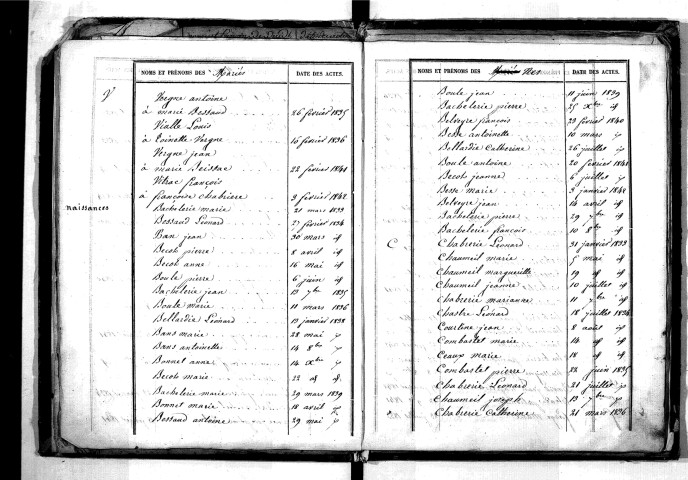 NOMS ET PRÉNOMS DES Mariés DATE DES ACTES.
V
Vergne antoine
à marie Bossaud 26 février 1835
Vialle Louis
à toinette Vergne 16 février 1836
Vergne jean
à marie Teissac 22 février 1841
Vitrac françois
à françoise Chabriere 9 février 1842
naissances
Bachelerie marie 21 mars 1833
Bossaud Léonard 27 février 1834
Ban jean 30 mars if
Becob pierre 8 avril if
Becob anne 16 mai if
Boule pierre 6 juin if
Bachelerie jean 13 7bre 1835
Boule marie 11 mars 1836
Bellardie Léonard 13 janvier 1838
Bans marie 28 mai
Bans antoinette 14 8bre
Bonnet anne 14 Xbre
Becob marie 22
Bachelerie marie 29 mars 1839
Bonnet marie 18 avril
Bossaud antoine 29 mai
NOMS ET PRÉNOMS DES Nés DATE DES ACTES.
Boule jean 11 juin 1839
Bachelerie pierre 25 Xbre if
Belveyre françois 29 février 1840
Besse antoinette 10 mars
Bellardie Catherine 26 juillet
Boule antoine 20 février 1841
Becob jeanne 6 juillet
Besse marie 3 janvier 1842
Belveyre jean 14 avril if
Bachelerie pierre 29 7bre if
Bachelerie françois 10 8bre if
C Chabrerie Léonard 31 janvier 1833
Chaumeil marie 5 mai if
Chaumeil marguerille 19 if
Chaumeil jeanne 10 juillet if
Chabrerie marianne 11 7bre if
Chastre Léonard 18 juillet 1834
Courtine jean 8 août if
Combastet marie 14 if
Ceaux marie 18 if
Combastet pierre 22 juin 1835
Chabrerie Léonard 21 juillet
Chaumeil joseph 13 7bre
Chabrerie Catherine 21 mars 1836